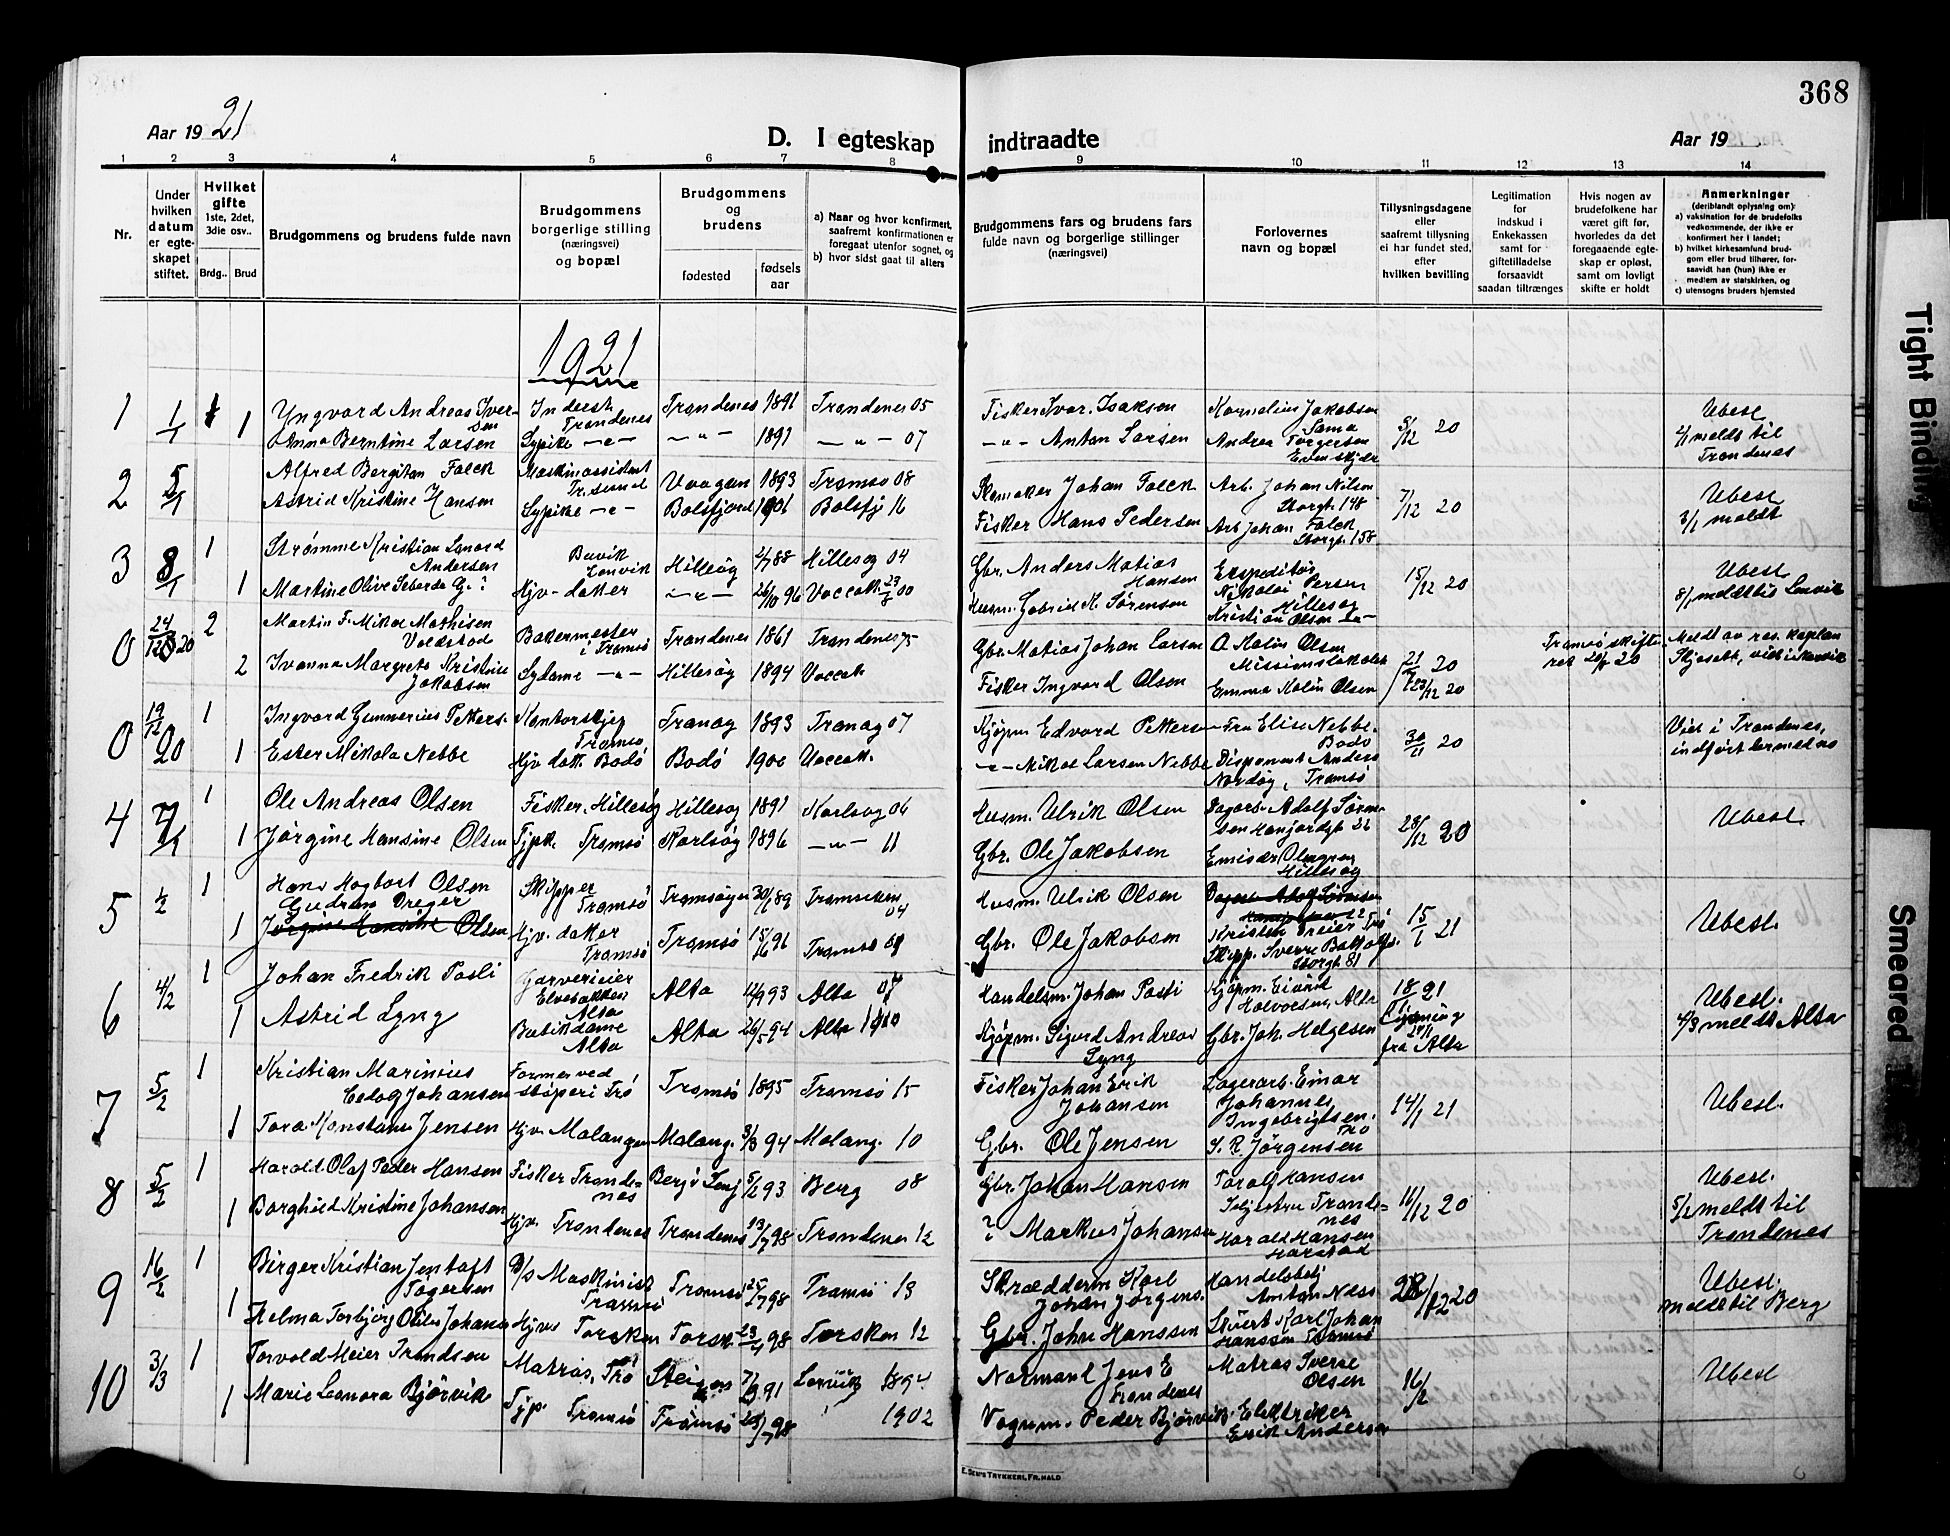 368
Aar 1921
D. I egteskap indtraadte
Aar 19
1 2 3 4 5 6 7 8 9 10 11 12 13 14
Nr.
Under
hvilken
datum
er egte-
skapet
stiftet.
Hvilket
gifte
1ste, 2det,
3die osv..
Brdg.. Brud
Brudgommens og brudens fulde navn
Brudgommens
borgerlige stilling
(næringsvei)
og bopæl
Brudgommens
og
brudens
fødested
fødsels
aar
a) Naar og hvor konfirmert,
saafremt konfirmationen er
foregaat utenfor sognet, og
b) hvor sidst gaat til alters
Brudgommens fars og brudens fars
fulde navn og borgerlige stillinger
(næringsvei)
Forlovernes
navn og bopæl
Tillysningsdagene
eller
saafremt tillysning
ei har fundet sted,
efter
hvilken bevilling
Legitimation
for
indskud i
Enkekassen
samt for
giftetilladelse
forsaavidt
saadan tiltrænges
Hvis nogen av
brudefolkene har
været gift før,
hvorledes da det
foregaaende egte-
skap er opløst,
samt om lovligt
skifte er holdt
Anmerkninger
(deriblandt oplysning om):
a) vaksination for de brudefolks
vedkommende, der ikke er
konfirmert her i landet;
b) hvilket kirkesamfund brud-
gom eller brud tilhører, for-
saavidt han (hun) ikke er
medlem av statskirken, og
c) utensogns bruders hjemsted
1921
1 1/1 1 Yngvard Andreas Iver-
sen
Inderst
Trondenes
Trondenes 1891 Trondenes 05
Fisker Ivar Isaksen
Kornelius Jakobsen
Sama
5/12 20
Ubesl.
1 Anna Berntine Larsen
Sypike -„- -„- 1897 -„- 07
-„- Anton Larsen
Andrea Torgersen
Evenskjær
meldt til
Trondenes
2 5/1 Alfred Bergitan Falck
Maskinassistent
Tromsø
Vaagan 1893 Tromsø 08
Skomaker Johan Falck
Arb. Johan Nilsen
Storgt. 148
7/12 20
Ubesl.
3/1 meldt
Astrid Kristine Hansen
Sypike -„- Balsfjord 1901 Balsfj 16
Fisker Hans Pedersen
Arb Johan Falck
Storgt. 158
3 8/1 1 Strømme Kristian Leonard
Andersen
Buvik
Lenvik
Hillesøy 2/7 88 Hillesøy 04
Gbr. Anders Matias
Hansen
Ekspeditør
Nikolai Persen
Hillesøy
15/12 20
Ubesl.
8/1 meldt til Lenvik
1 Martine Olive Seberda G.?
Hjv-datter -„- 26/10 96
Husm. Gabriel K. Sørensen
Kristian Olsen -„-
0 24/12 20 2 Martin F. Mikal Mathisen
Voldstad
Bakermester
i Tromsø
Trondenes 1861 Trondenes 75
Gbr. Matias Johan Larsen
O Kolin Olsen
21/12 20
23/12 20
Tromsø skifte-
ret 28/8 20
Meldt av res. kaplan
Skjeseth,
2 Ivanna Margrete Kristine
Jakobsen
Sydame -„- Hillesøy 1894
Fisker Ingvard Olsen
Emma Kolin Olsen
0 19/12 20 1 Ingvard Gunnerius Petters.
Kontorsbtj
Tromsø
Tranøy 1893 Tranøy 07
Kjøpm Edvard Petterse
Fru Elise Nebbe
Bodø
30/11 20
Viet i Trondenes,
1 Ester Mikola Nebbe
Hjv. datt. Bodø Bodø 1900
-„- Mikal Larsen Nebbe
Disponent Anders
Nordøy, Tromsø
4 7/1 1 Ole Andreas Olsen
Fisker. Hillesøy Hillesøy 1891 Karlsøy 06
Husm. Ulrik Olsen
28/12 20
Ubesl.
1 Jørgine Hansine Olsen
Tjpk. Tromsø Karlsøy 1896 -„- 11
Gbr. Ole Jakobsen
Hillesøy
5 1/2 1 Hans Hagbart Olsen
Skipper
Tromsø
Tromsøysu 30/1 89
04
Husm. Ulrik Olsen
15/1 21
Ubesl.
Gudrun Dreyer
1 Jørgine Hansine Olsen
Hjv. datter
Tromsø
Tromsø 15/6 91 Tromsø 08
Gbr. Ole Jakobsen
Storgt. 81
6 4/2 1 Johan Fredrik Posti
Garverieier
Elvebakken
Alta
Alta 11/9 93 Alta 07
Handelsm. Johan Posti
Kjøpm. Eivind
Halvorsen, Alta
18/1 21
Ubesl.
4/3 meldt Alta
1 Astrid Lyng
Butikdame
Alta
Alta 26/5 94 Alta 1910
Kjøpm. Sigurd Andreas
Lyng
Gbr. Joh. Helgesen
Lysning
fra Alta
7 5/2 1 Kristian Marinius
Eelog Johansen
Former ved
støperi Trø
Tromsø 1895 Tromsø 15
Fisker Johan Erik
Johansen
Lagerarb. Einar
Johannes
Ingebrigtsen.
Trø
14/1 21
Ubesl.
1 Tora Konstanse Jensen
Hjv. Malangen Malang. 3/3 94 Malang. 10
Gbr. Ole Jensen
S. R. Jørgensen
8 5/2 1 Harald Olaf Peder Hansen
Fisker Tronde-
nes
Berg i Senj 5/2 93 Berg 08
Gbr. Johan Hansen
Toralf Hansen
Tronde-
nes
11/12 20
Ubesl.
5/2 meldt til
Trondenes
1 Borghild Kristine Johansen
Hjv. Trondenes Trondenes 13/7 98 Trondenes 12
? Markus Johansen
Harald Hansen
Harstad
9 16/2 1 Birger Kristian Jentoft
Jøgersen
D/s Maskinist
Tromsø
Tromsø 25/7 98 Tromsø 13
Skrædderm Karl
Johan Jørgens.
Handelsbtj
Anton Næss
28/12 20
Ubesl.
meldt til Berg
1 Helma Torbjørg Otilie Johans
Hjv. Torsken Torsk. 23/4 98 Torsken 12
Gbr. John Hanssen
Stuert Karl Johan
Hanssen Tromsø
10 3/3 1 Torvald Meier Trondsen
Matros, Trø Steigen 7/9 91 Lenvik 1894
Normanl Jens E
Trondenes
Matros Sverre
Olsen
16/2
Ubesl
1 Marie Leonora Bjørvik
Tjp. Tromsø Tromsø 98 1902
Vognm. Peder Bjørvik
Elektriker
Erik Andersen
E. SEM'S TRYKKERI, FR.HALD
Tight Binding
Smeared